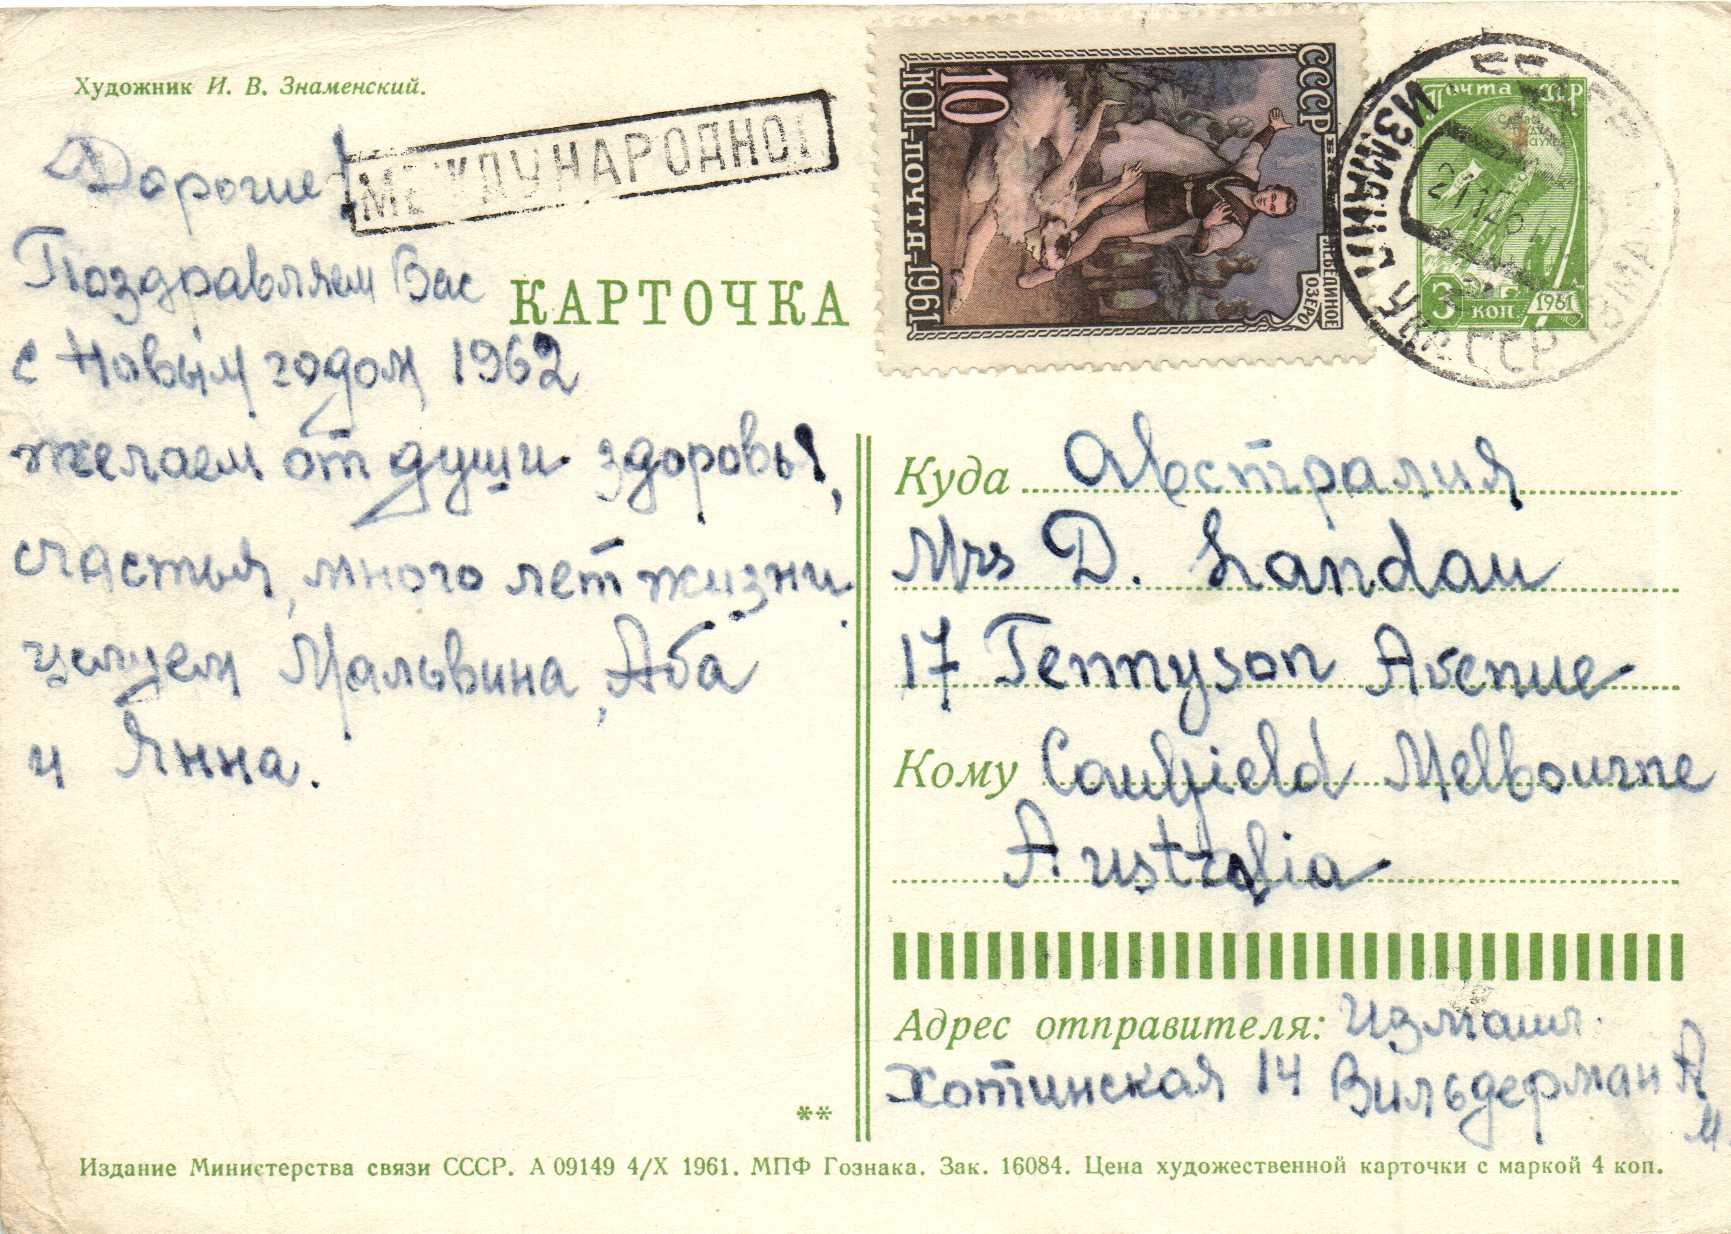 Художник И. В. Знаменский.
МЕЖДУНАРОДНОЕ
Дорогие!
Поздравляем Вас
с Новым годом 1962
желаем от души здоровья,
счастья, много лет жизни.
целуем Мальвина, Аба
и Янна.
КАРТОЧКА
СССР
ЛЕБЕДИНОЕ
ОЗЕРО
10
КОП·ПОЧТА·1961
Почта СССР
3 коп. 1961
ИЗМАИЛ
УКР. ССР
Куда Австралия
Mrs D. Landau
17 Tennyson Avenue
Кому Caulfield Melbourne
Australia
Адрес отправителя: Измаил.
Хотинская 14 Вильдерман А
М
**
Издание Министерства связи СССР. А 09149 4/X 1961. МПФ Гознака. Зак. 16084. Цена художественной карточки с маркой 4 коп.